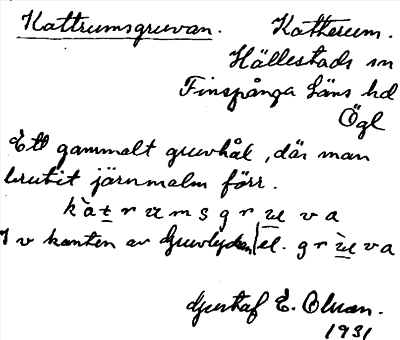 Kattrumsgruvan. Katherum.
Hällestads sn
Finspånga läns hd
Ögl
Ett gammalt gruvhål, där man
brutit järnmalm förr.
kàt̠rumsgru̠va
I v kanten av el. grù̠va
Gustaf E. Olsson.
1931